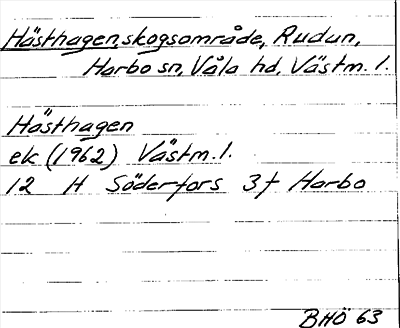 Hästhagen, skogsområde, Rudun,
Harbo sn, Våla hd, Västm. l.
Hästhagen
ek (1962) Västm. l.
12 H Söderfors 3f Harbo
BHÖ 63